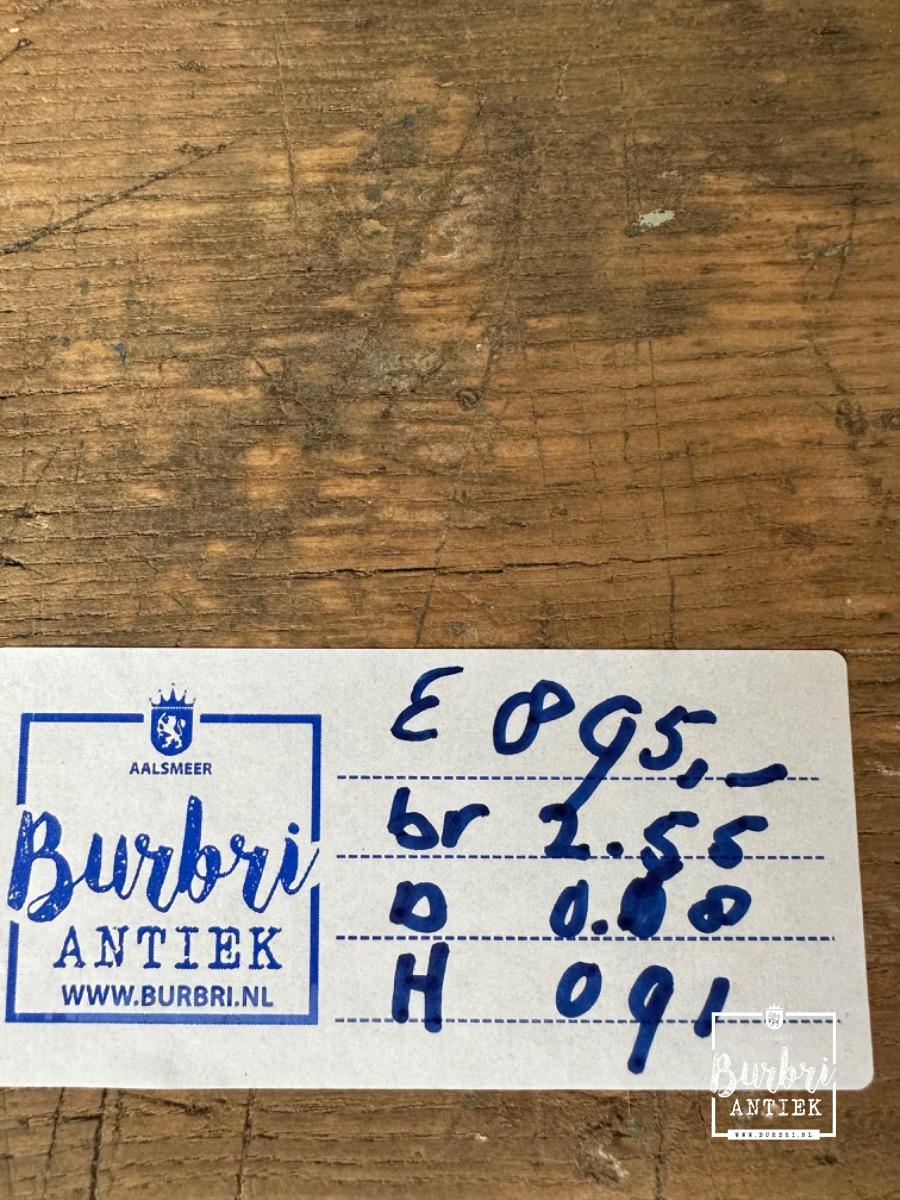 AALSMEER
Burbri
ANTIEK
WWW.BURBRI.NL
€ 895,-
br 2.55
D
H 091
Burbri
ANTIEK
WWW.BURBRI.NL